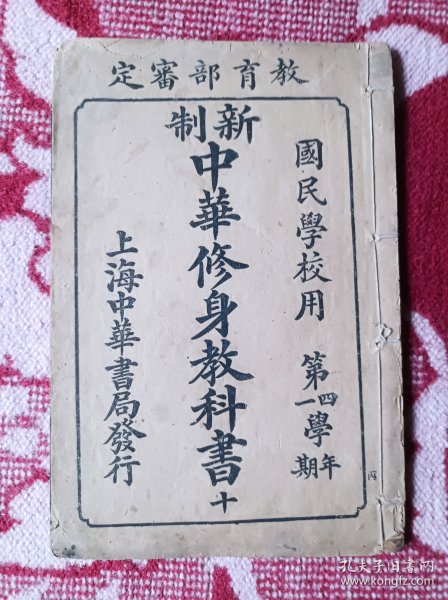 教育部審定
國民學校用
第四學年
第一學期
新制
中華修身教科書十
上海中華書局發行
丙
孔夫子旧书网